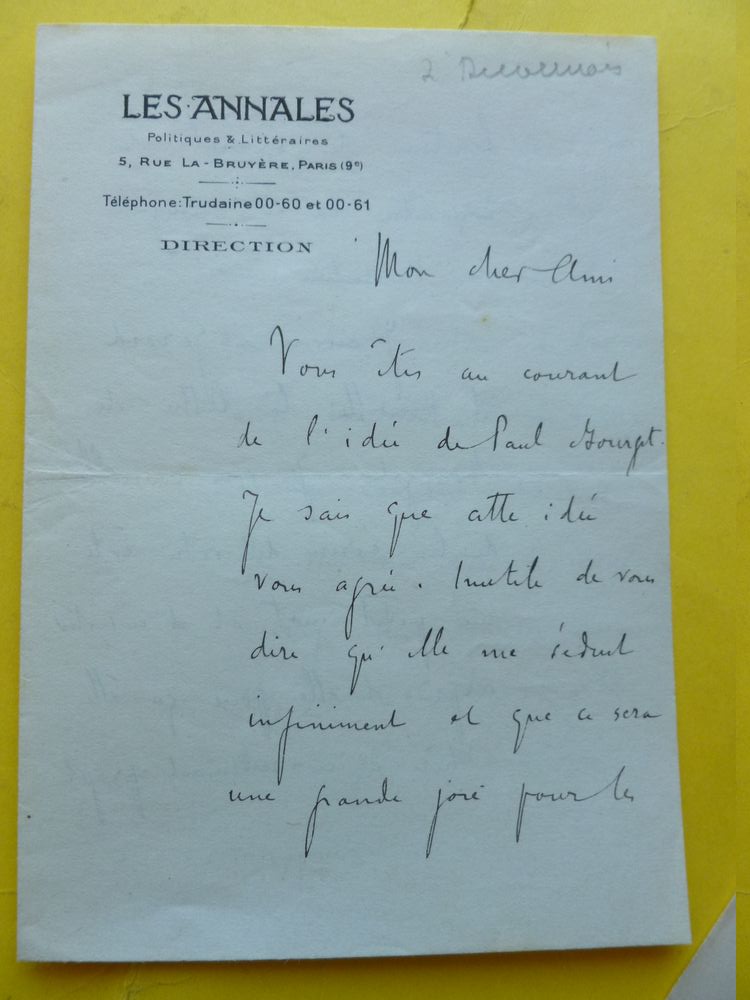 LES ANNALES
Politiques & Littéraires
5, RUE LA-BRUYÈRE, PARIS (9e)
Téléphone: Trudaine 00-60 et 00-61
DIRECTION
Mon cher Ami
Vous êtes au courant
de l'idée de Paul Bourget.
Je sais que cette idée
vous agrée. Inutile de vous
dire qu'elle me séduit
infiniment et que ce sera
une grande joie pour les